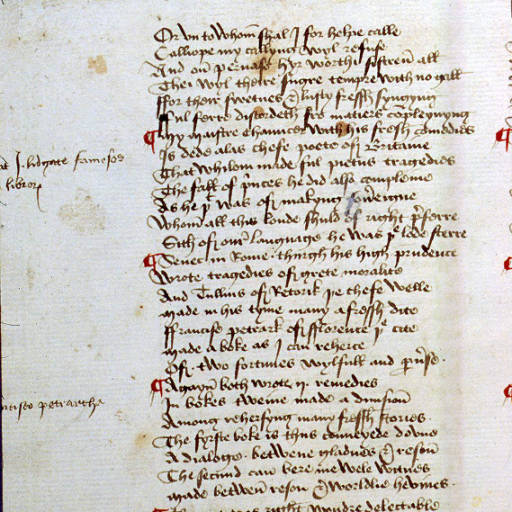 Or vn to whom shal I for helpe calle
Calliope my callyng wyl refuse
And on pernaso hyr worthi sustren all
Thei wyl theire sugre tempre with no gall
ffor their swetnes & lusty fressh syngyng
fful ferre discordeth fro matiere compleynyng
My maistre Chaucer with his fressh comedies
Is dede alas chefe poete of Britaine
That whilom made ful pietus tragedies
The fall of princes he did also compleine
As he þt was of makyng souereigne
Whom all this londe shuld of right preferre
Sith of our language he was þe lode sterre
Senec in Rome thurgh his high prudence
Wrote tragedies of grete moralite
And Tullius of Retorik þe chefe welle
made in his tyme many a fressh dite
ffrancise petrark of fflorence þe cite
made a boke as I can reherce
Of two fortunes wylfull and peruerse
Agayn both wrote .ij. remedies
In bokes tweine made a diuision
Among rehersyng many fressh stories
The fyrste boke is thus conueyede doune
A dialoge betwene gladnes & reson
The second can bere me wele witnes
made betwen reson & worldlie heuines
J. lidgate famosos
libror
petrarcha